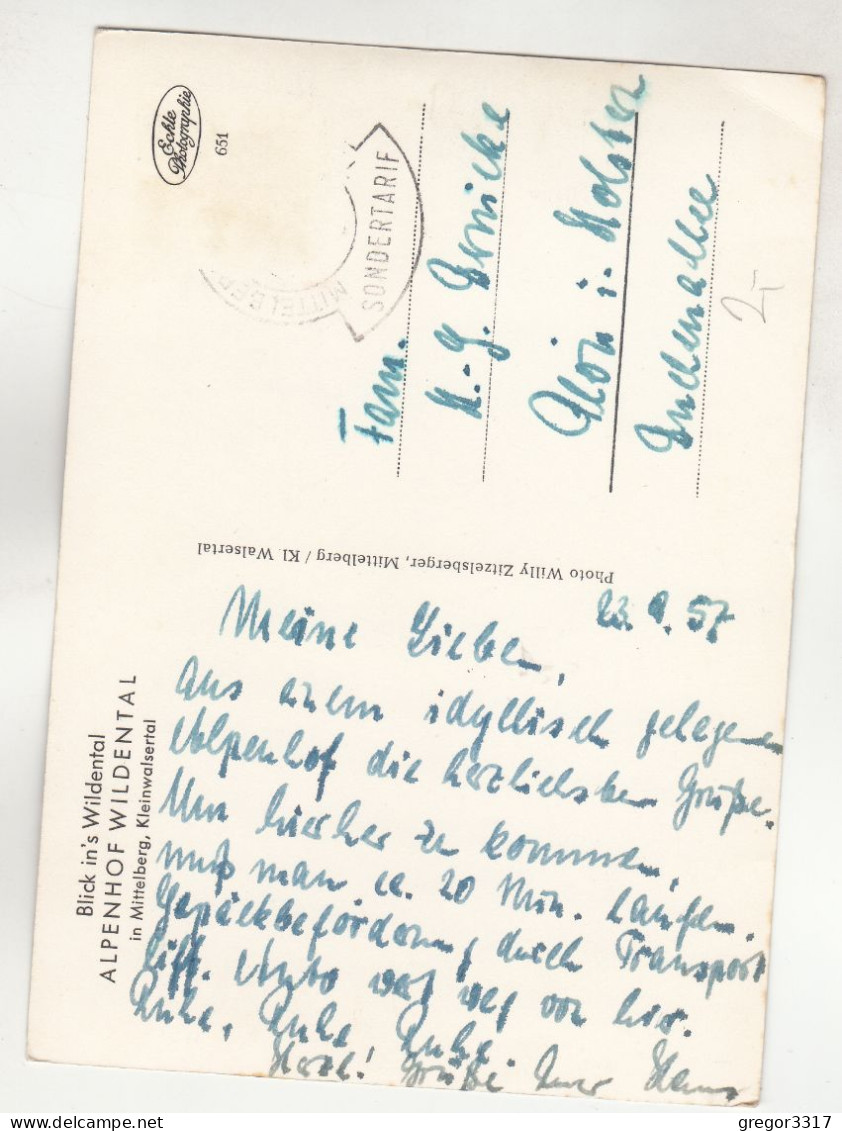 Blick in's Wildental
ALPENHOF WILDENTAL
in Mittelberg, Kleinwalsertal
Echte
Photographie
651
MITTELBER
SONDERTARIF
Photo Willy Zitzelsberger, Mittelberg / Kl. Walsertal
Fam.
H.-G.
Plön i. Holstein
2,-
23. 9. 57
Meine Lieben,
aus einem idyllisch gelegenen
Alpenhof die herzlichsten Grüße.
Um hierher zu kommen,
muß man ca. 20 Min. laufen.
Gepäckbeförderung durch Transport
lift. Auto weg von hier.
Ruhe, Ruhe Ruhe
Herzl. Grüße Euer Hans
gregor3317